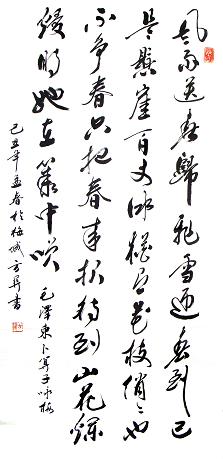 風雨送春歸飛雪迎春到已
是懸崖百丈冰猶有花枝俏々也
不争春只把春来报待到山花爛
熳时她在叢中笑 毛澤東卜算子咏梅
己丑年孟春於梅城方書